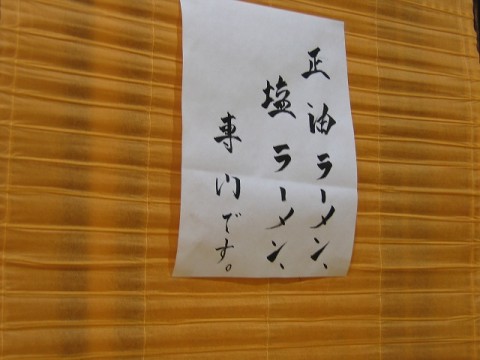 正油ラーメン、
塩ラーメン、
専門です。